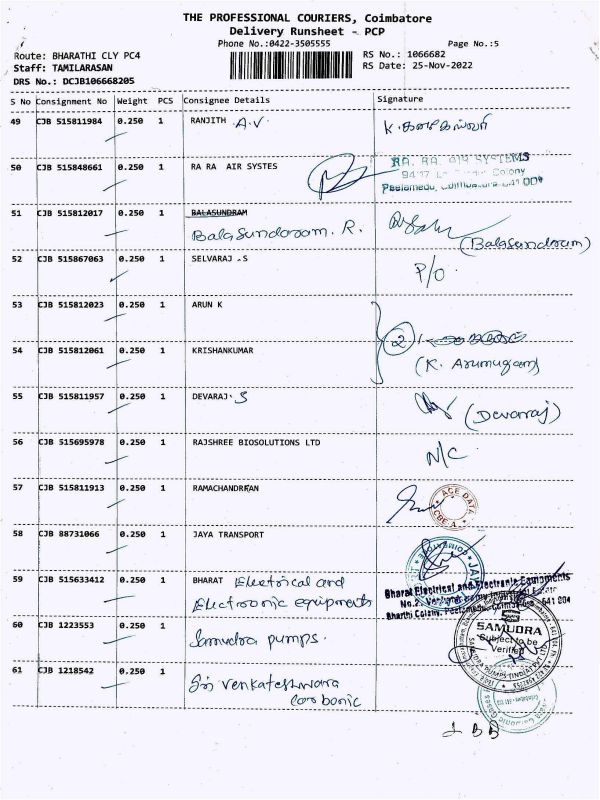 THE PROFESSIONAL COURIERS, Coimbatore
Delivery Runsheet - PCP
Phone No.:0422-3505555
Page No.:5
Route: BHARATHI CLY PC4
RS No.: 1066682
Staff: TAMILARASAN
RS Date: 25-Nov-2022
DRS No.: DCJB106668205
S No Consignment No Weight PCS Consignee Details Signature
49 CJB 515811984 0.250 1 RANJITH A.V
50 CJB 515848661 0.250 1 RA RA AIR SYSTES
RA. RA. AIR SYSTEMS
Colony
Peelamedu, Coimbatore-641 004
51 CJB 515812017 0.250 1 BALASUNDRAM
Balasundaram. R. (Balasundaram)
52 CJB 515867063 0.250 1 SELVARAJ .S P/O.
53 CJB 515812023 0.250 1 ARUN K
2
54 CJB 515812061 0.250 1 KRISHANKUMAR (K. Arumugam)
55 CJB 515811957 0.250 1 DEVARAJ. S (Devaraj)
56 CJB 515695978 0.250 1 RAJSHREE BIOSOLUTIONS LTD N/C.
57 CJB 515811913 0.250 1 RAMACHANDRAN
ACE DATA
CBE
58 CJB 88731066 0.250 1 JAYA TRANSPORT
59 CJB 515633412 0.250 1 BHARAT Electrical and
Electronic equipments
Bharat Electrical and Electronic Equipments
Bharthi Colony, Peelamedu, Coimbatore - 641 004
60 CJB 1223553 0.250 1
Samudra pumps.
SAMUDRA
Subject to be
Verified
61 CJB 1218542 0.250 1
Sri Venkateshwara
Carbonic